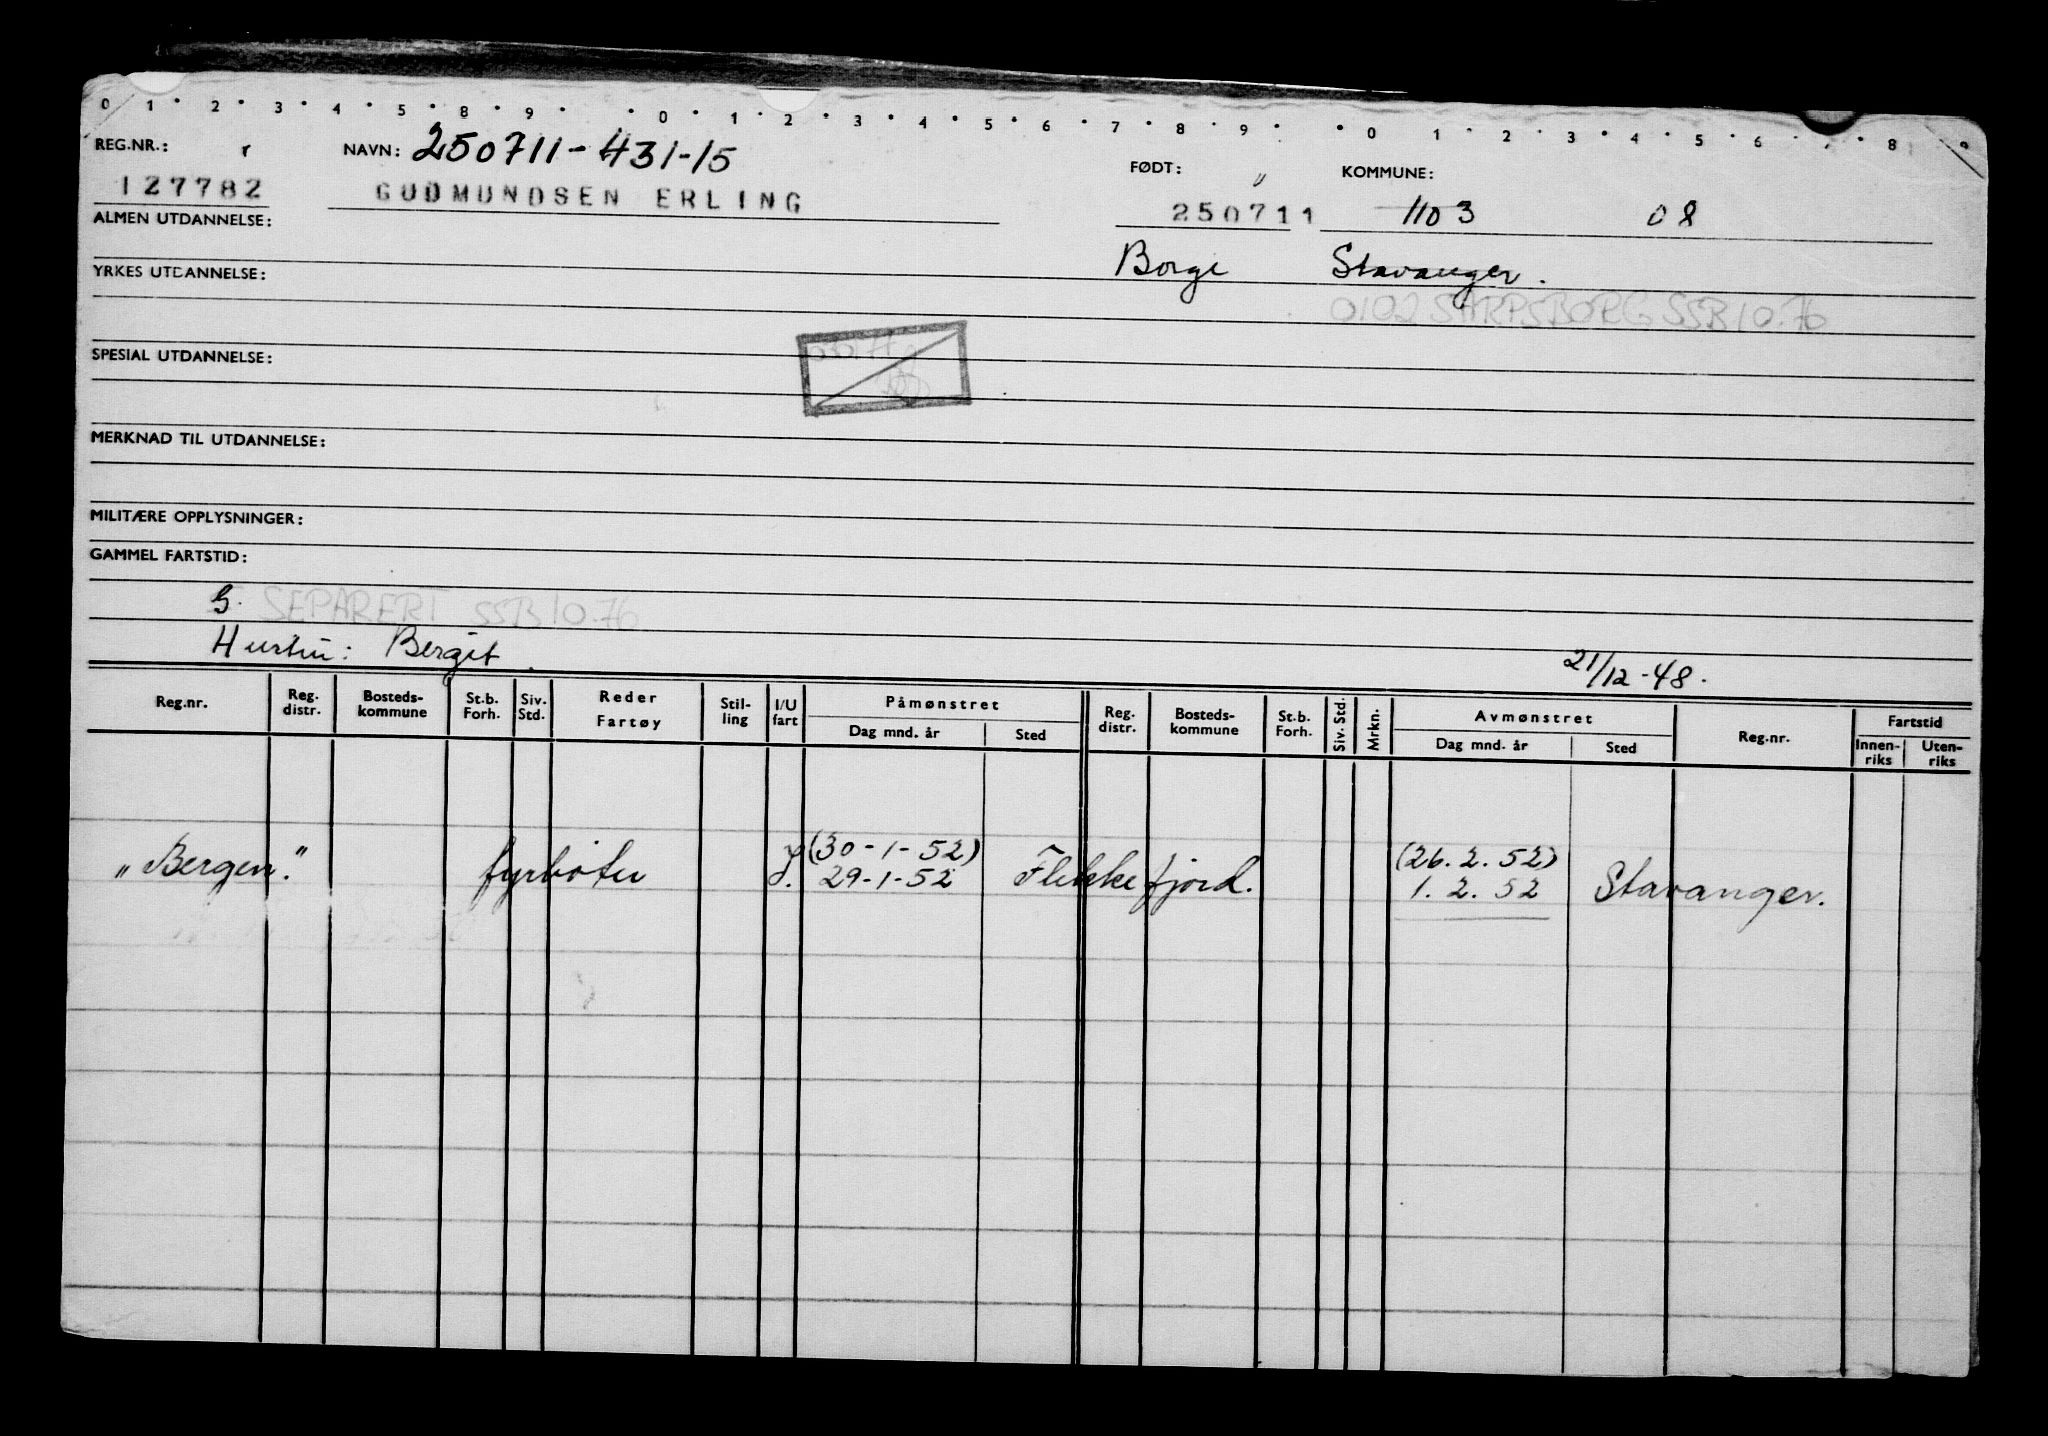 0 1 2 3 4 5 8 9 0 1 2 3 4 5 6 7 8 9 0 1 2 3 4 5 6 7 8 9
REG.NR.: r NAVN: 250711-431-15 FØDT: " KOMMUNE:
127782 GUDMUNDSEN ERLING 250711 1103 08
ALMEN UTDANNELSE:
Borge Stavanger.
YRKES UTDANNELSE:
0102 SARPSBORG SSB 10.76
SPESIAL UTDANNELSE:
MERKNAD TIL UTDANNELSE:
MILITÆRE OPPLYSNINGER:
GAMMEL FARTSTID:
G. SEPARERT SSB 10.76
Hustru: Bergit. 21/12-48.
Reg.nr. Reg. distr. Bosteds-kommune St.b. Forh. Siv. Std. Reder Fartøy Stil-ling I/U fart Påmønstret Reg. distr. Bosteds-kommune St.b. Forh. Siv. Std. Mrkn. Avmønstret Reg.nr. Fartstid
Dag mnd. år Sted Dag mnd. år Sted Innen-riks Uten-riks
(30-1-52) (26.2.52)
"Bergen." fyrbøter I. 29-1-52 Flekkefjord. 1.2.52 Stavanger.